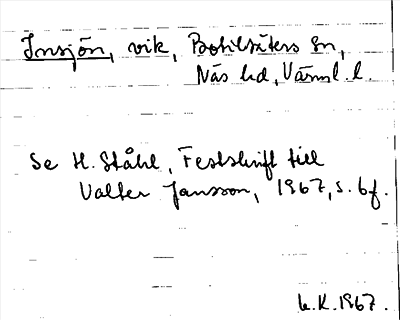 Insjön, vik, Botilsäters sn,
Näs hd, Värml. l.
Se H. Ståhl, Festskrift till
Valter Jansson, 1967, s. 6f.
L.K. 1967.